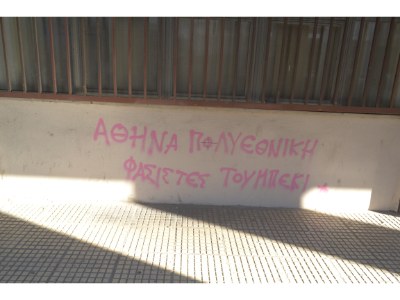 ΑΘΗΝΑ ΠΟΛΥΕΘΝΙΚΗ
ΦΑΣΙΣΤΕΣ ΤΟΥΜΠΕΚΙ